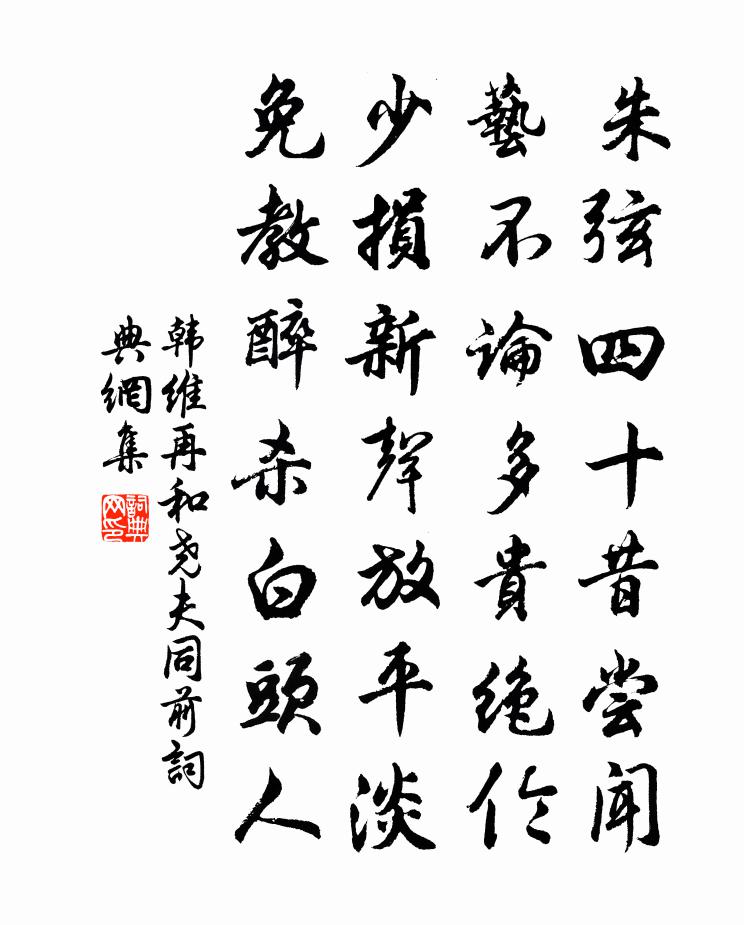 朱弦四十昔尝闻
藝不論多貴絶伦
少損新聲放平淡
免教醉杀白頭人
韩维再和尧夫同前詞
典網集
詞典网印